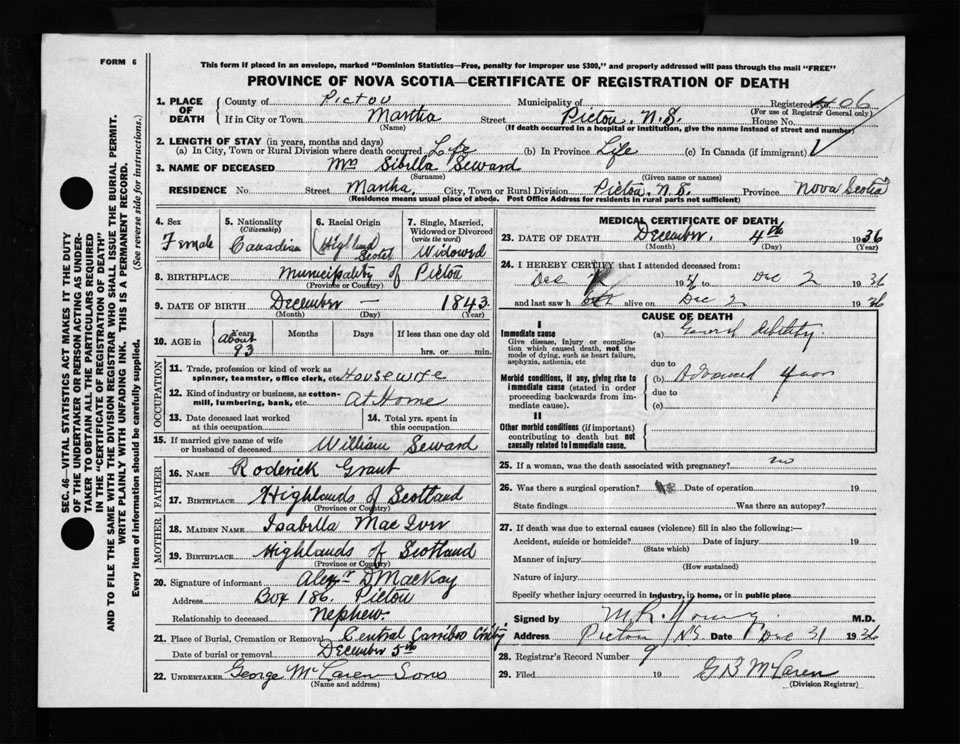 FORM 6
This form if placed in an envelope, marked "Dominion Statistics—Free, penalty for improper use $300," and properly addressed will pass through the mail "FREE"
PROVINCE OF NOVA SCOTIA—CERTIFICATE OF REGISTRATION OF DEATH
SEC. 46—VITAL STATISTICS ACT MAKES IT THE DUTY
OF THE UNDERTAKER OR PERSON ACTING AS UNDER-
TAKER TO OBTAIN ALL THE PARTICULARS REQUIRED
IN THE "CERTIFICATE OF REGISTRATION OF DEATH"
AND TO FILE THE SAME WITH THE DIVISION REGISTRAR WHO SHALL ISSUE THE BURIAL PERMIT.
WRITE PLAINLY WITH UNFADING INK. THIS IS A PERMANENT RECORD.
Every item of information should be carefully supplied. (See reverse side for instructions.)
1. PLACE OF DEATH
County of Pictou Municipality of Registered No. 406
(For use of Registrar General only)
If in City or Town Martha Street Pictou, N.S. House No.
(Name) (If death occurred in a hospital or institution, give the name instead of street and number)
2. LENGTH OF STAY (in years, months and days)
(a) In City, Town or Rural Division where death occurred Life (b) In Province Life (c) In Canada (if immigrant)
3. NAME OF DECEASED Mrs Sibella Seward
(Surname) (Given name or names)
RESIDENCE No. Street Martha City, Town or Rural Division Pictou, N.S. Province Nova Scotia
(Residence means usual place of abode. Post Office Address for residents in rural parts not sufficient)
4. Sex Female
5. Nationality (Citizenship) Canadian
6. Racial Origin (Highland Scotch
7. Single, Married, Widowed or Divorced (write the word) Widowed
8. BIRTHPLACE Municipality of Pictou
(Province or Country)
9. DATE OF BIRTH December — 1843
(Month) (Day) (Year)
10. AGE in Years About 93 Months Days If less than one day old hrs. or min.
OCCUPATION
11. Trade, profession or kind of work as spinner, teamster, office clerk, etc. Housewife
12. Kind of industry or business, as cotton-mill, lumbering, bank, etc. At Home
13. Date deceased last worked at this occupation
14. Total yrs. spent in this occupation
15. If married give name of wife or husband of deceased William Seward
FATHER
16. NAME Roderick Grant
17. BIRTHPLACE Highlands of Scotland
(Province or Country)
MOTHER
18. MAIDEN NAME Isabella MacIver
19. BIRTHPLACE Highlands of Scotland
(Province or Country)
20. Signature of informant Alexr D MacKay
Address Box 186. Pictou
Relationship to deceased Nephew.
21. Place of Burial, Cremation or Removal Central Cariboo
Date of burial or removal December 5th
22. UNDERTAKER George McLaren Sons
(Name and address)
MEDICAL CERTIFICATE OF DEATH
23. DATE OF DEATH December, 4th 1936
(Month) (Day) (Year)
24. I HEREBY CERTIFY that I attended deceased from:
Dec to Dec 2 1936
and last saw h alive on Dec 2 1936
CAUSE OF DEATH
I
Immediate cause
Give disease, injury or complication which caused death, not the mode of dying, such as heart failure, asphyxia, asthenia, etc
(a) General debility
due to
Morbid conditions, if any, giving rise to immediate cause (stated in order proceeding backwards from immediate cause).
(b) Advanced years
due to
(c)
II
Other morbid conditions (if important) contributing to death but not causally related to immediate cause.
25. If a woman, was the death associated with pregnancy? no
26. Was there a surgical operation? No Date of operation 19
State findings Was there an autopsy?
27. If death was due to external causes (violence) fill in also the following:—
Accident, suicide or homicide? Date of injury 19
(State which)
Manner of injury
(How sustained)
Nature of injury
Specify whether injury occurred in industry, in home, or in public place
Signed by M.R. Young M.D.
Address Pictou NS Date Dec 31 1936
28. Registrar's Record Number 9
29. Filed 19 G B McLaren
(Division Registrar)